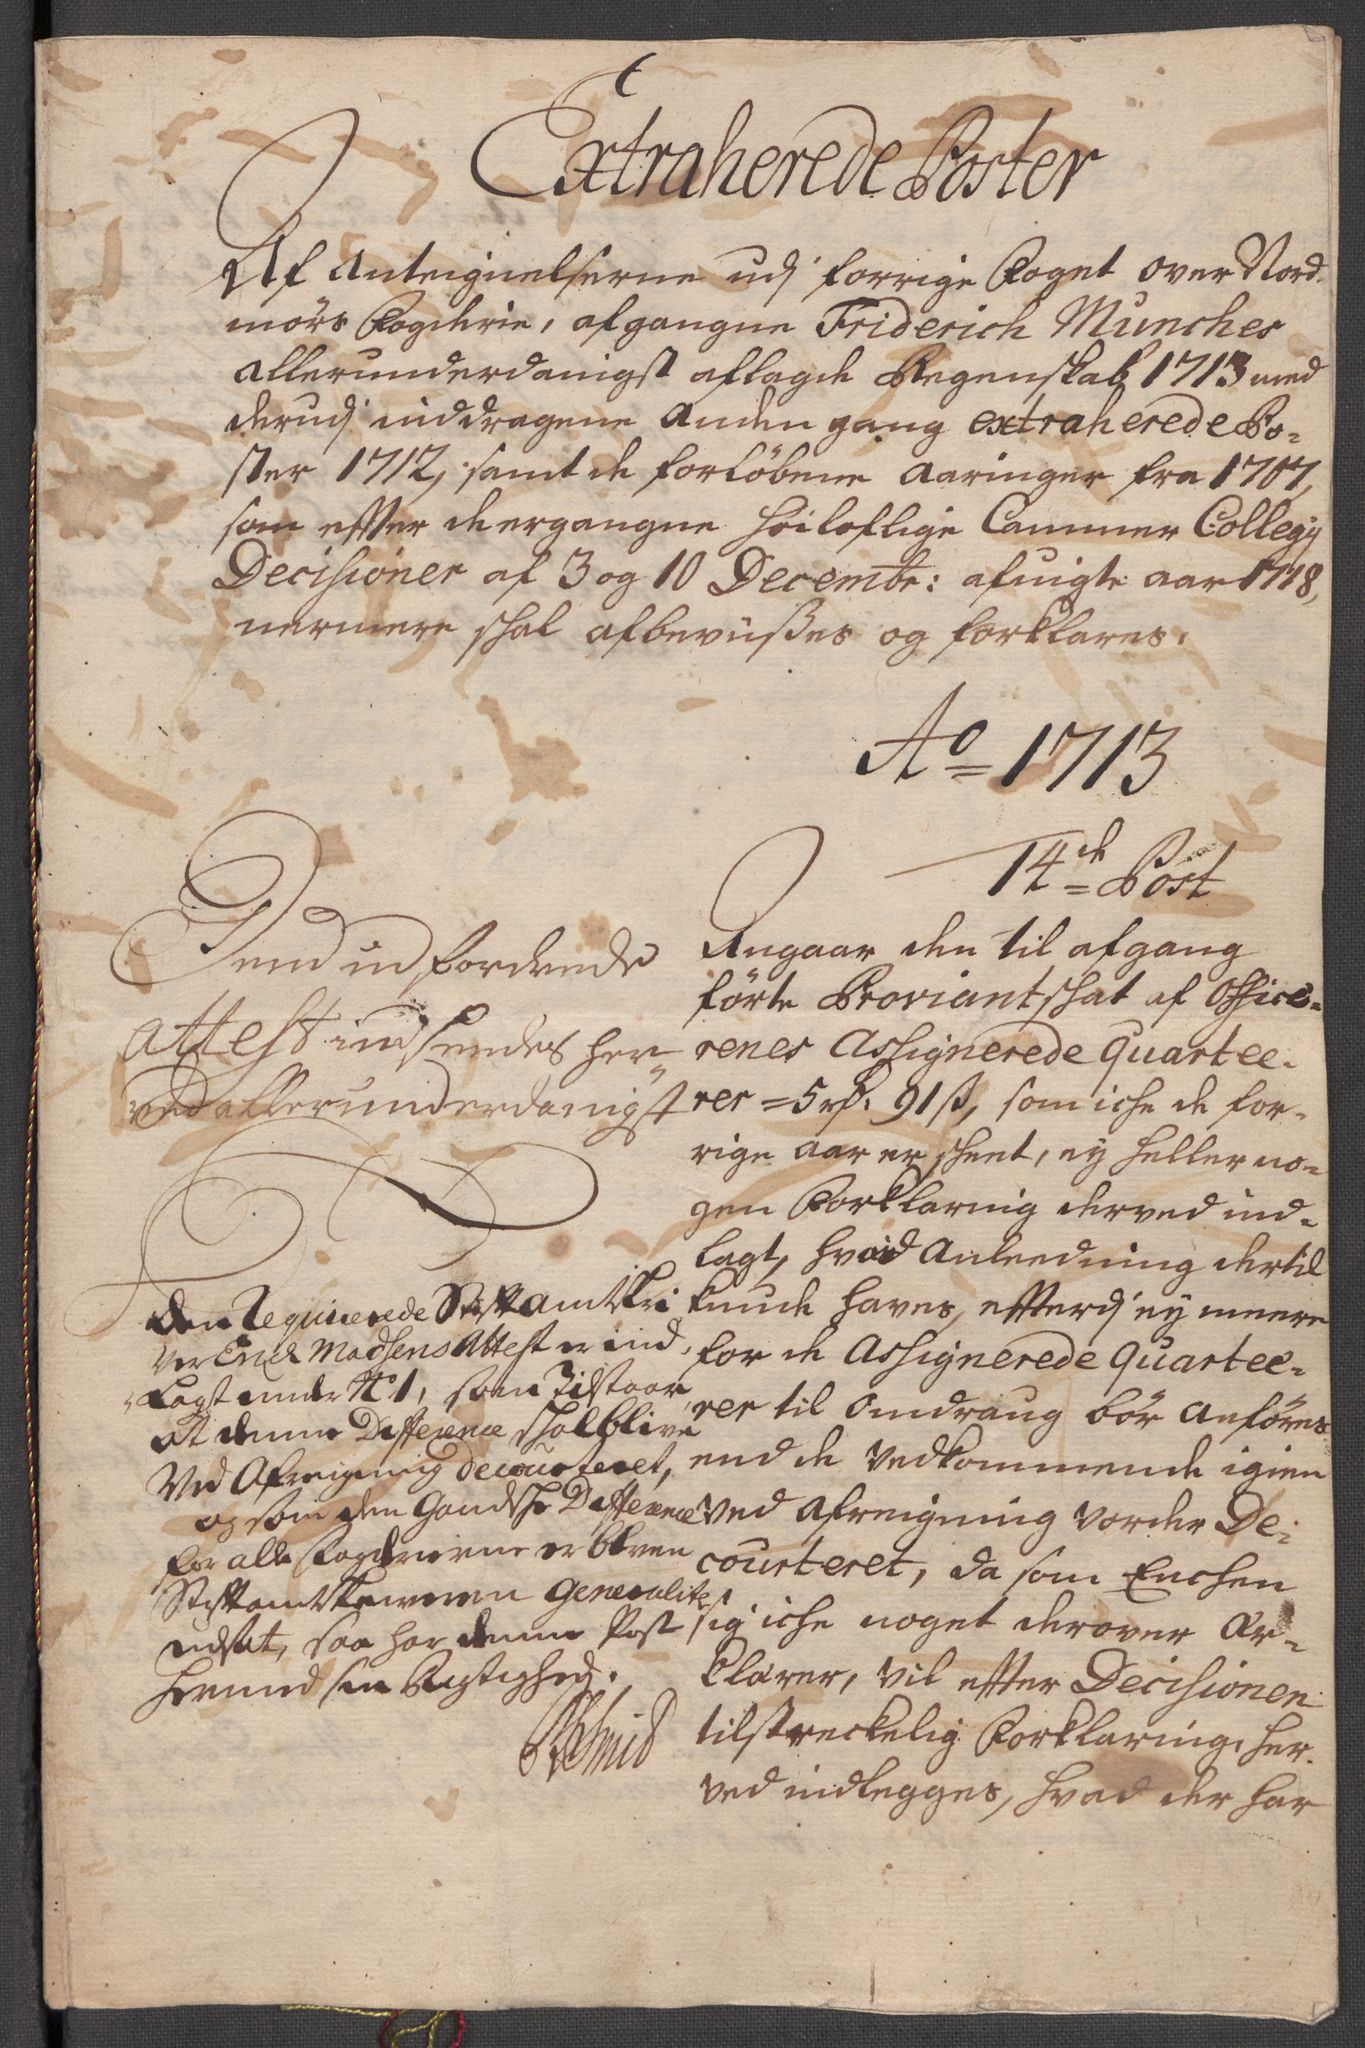 Extraherede Poster
Af Anteignelserne udj forrige Foget over Nord-
mörs Fogderie, afgangne Friderich Munches
allerunderdanigst aflagde Regenskab 1713 med
derudj inddragene Anden gang extraherede Po-
ster 1712, samt de forlöbene aaringer fra 1707,
som effter de ergangne höiloflige Cammer Collegij
Decisioner af 3 og 10 Decembr: afvigte aar 1718,
nermere skal afbevisses og forklares.
Ao 1713
14de Post
Angaar den til afgang
förte Proviantskat af Office-
renes Assignerede quartee-
rer = 5 rd. 91 ß, som iche de for-
rige aar er skeet, ej heller no-
gen Forklaring derved ind-
lagt, hvad Anleedning dertil
kunde haves, efterdj ej meere
for de Assignerede quartee-
rer til omdraug bör anföres
end de vedkommende igien
ved afreigning vorder De-
courteret, da som Enchen
sig iche noget derover Er-
klærer, vil effter Decisionen
tilstreckelig Forklaring her-
ved indlegges, hvad der har
Dend indfordrede
Attest indsendes her-
ved allerunderdanigst
Den Requirerede Stiftamtskri
ver Erick Madsens Attest er ind
lagt under No 1, som Tilstaar
at denne Difference skal blive
Ved Afreigning decourteret,
og som den Gandske Difference
for alle Fogderierne er bleven
Stiftamtskriveren Generalite
udsat, saa har denne Post
hermed sin Rigtighed.